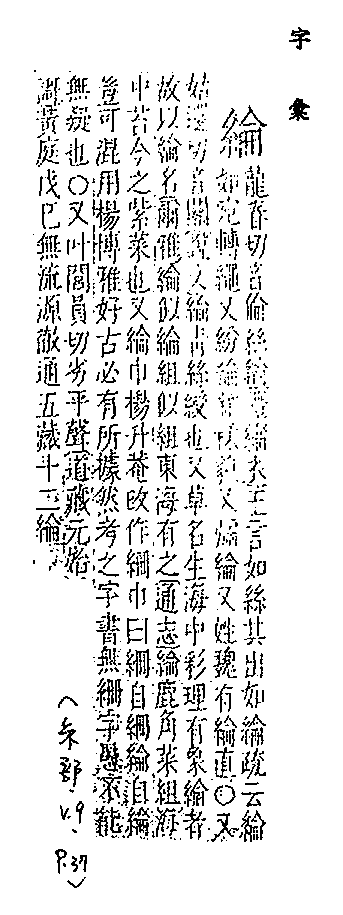 字彙
綸 龍春切音倫絲綸禮緇衣王言如絲其出如綸疏云綸
如宛轉繩又紛綸又綸又姓魏有綸直○又
姑還切音關說文綸青絲綬也又草名生海中彩理有象綸者
故以綸名爾雅綸似綸組似組東海有之通志綸鹿角菜組海
中苔今之紫菜也又綸巾楊升菴改作綱巾曰綱自綱綸自綸
豈可混用楊博雅好古必有所據然考之字書無綱字愚不能
無疑也○又叶閭員切劣平聲道藏元始
洞黃庭戊巳無流源徹通五藏十二綸
(糸部.V.9.P.37)